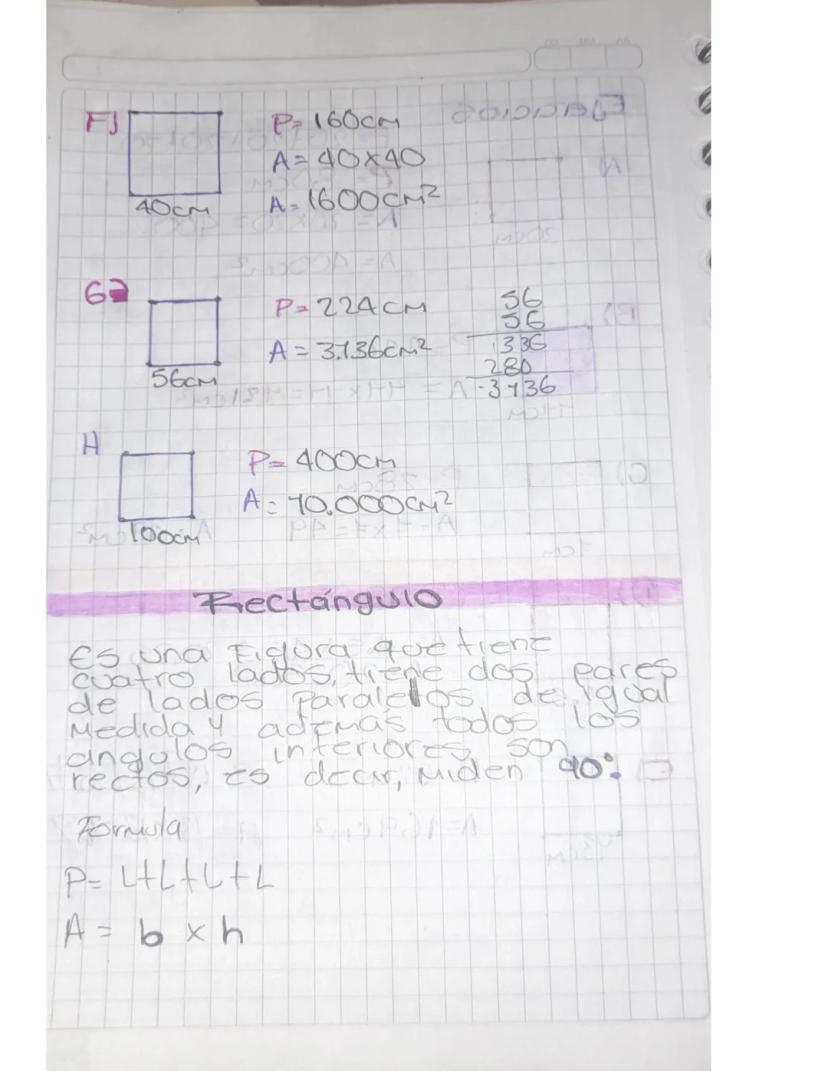 F)
P= 160cm
A= 40x40
40cm
A= 1600cm²
G
P= 224cm
56
56
A = 3.136cm²
336
280
56cm
3136
H
P= 400cm
A= 10.000cm²
100cm
Rectángulo
Es una Figura que tiene
cuatro lados, tiene dos pares
de lados paralelos de igual
medida y ademas todos los
angulos interiores son
rectos, es decir, miden 90°.
Formula
P= L+L+L+L
A = b x h